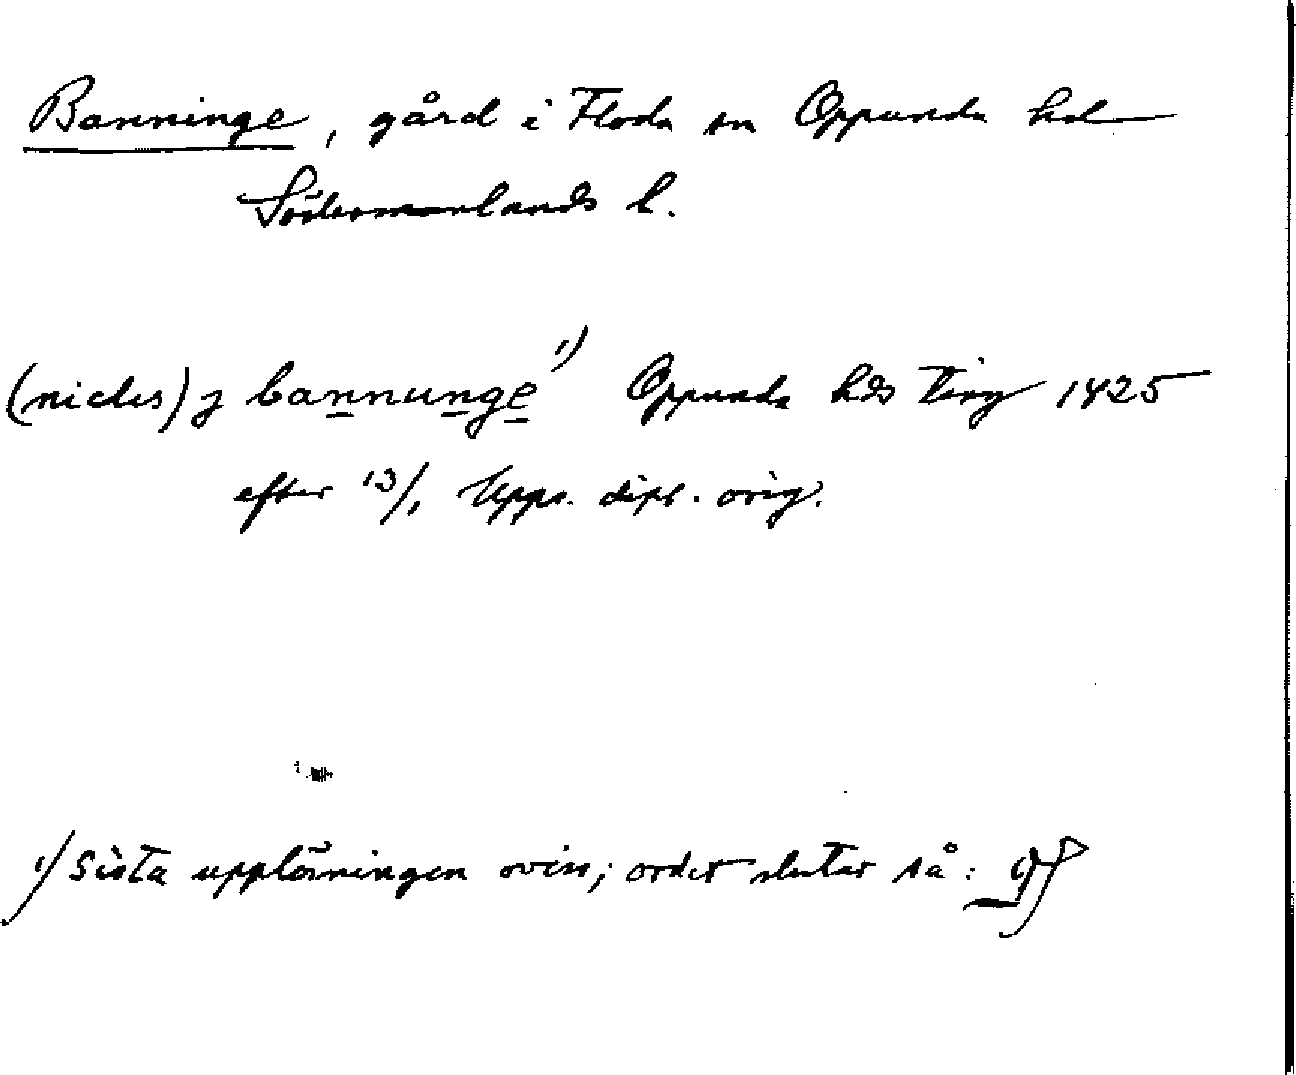 Banninge, gård i Floda sn Oppunda hd
Södermanlands l.
(niclis) j bannunge 1) Oppunda hds ting 1425
efter 13/1 Upps. dipl. orig.
1) Sista upplösningen oviss; ordet slutar så: